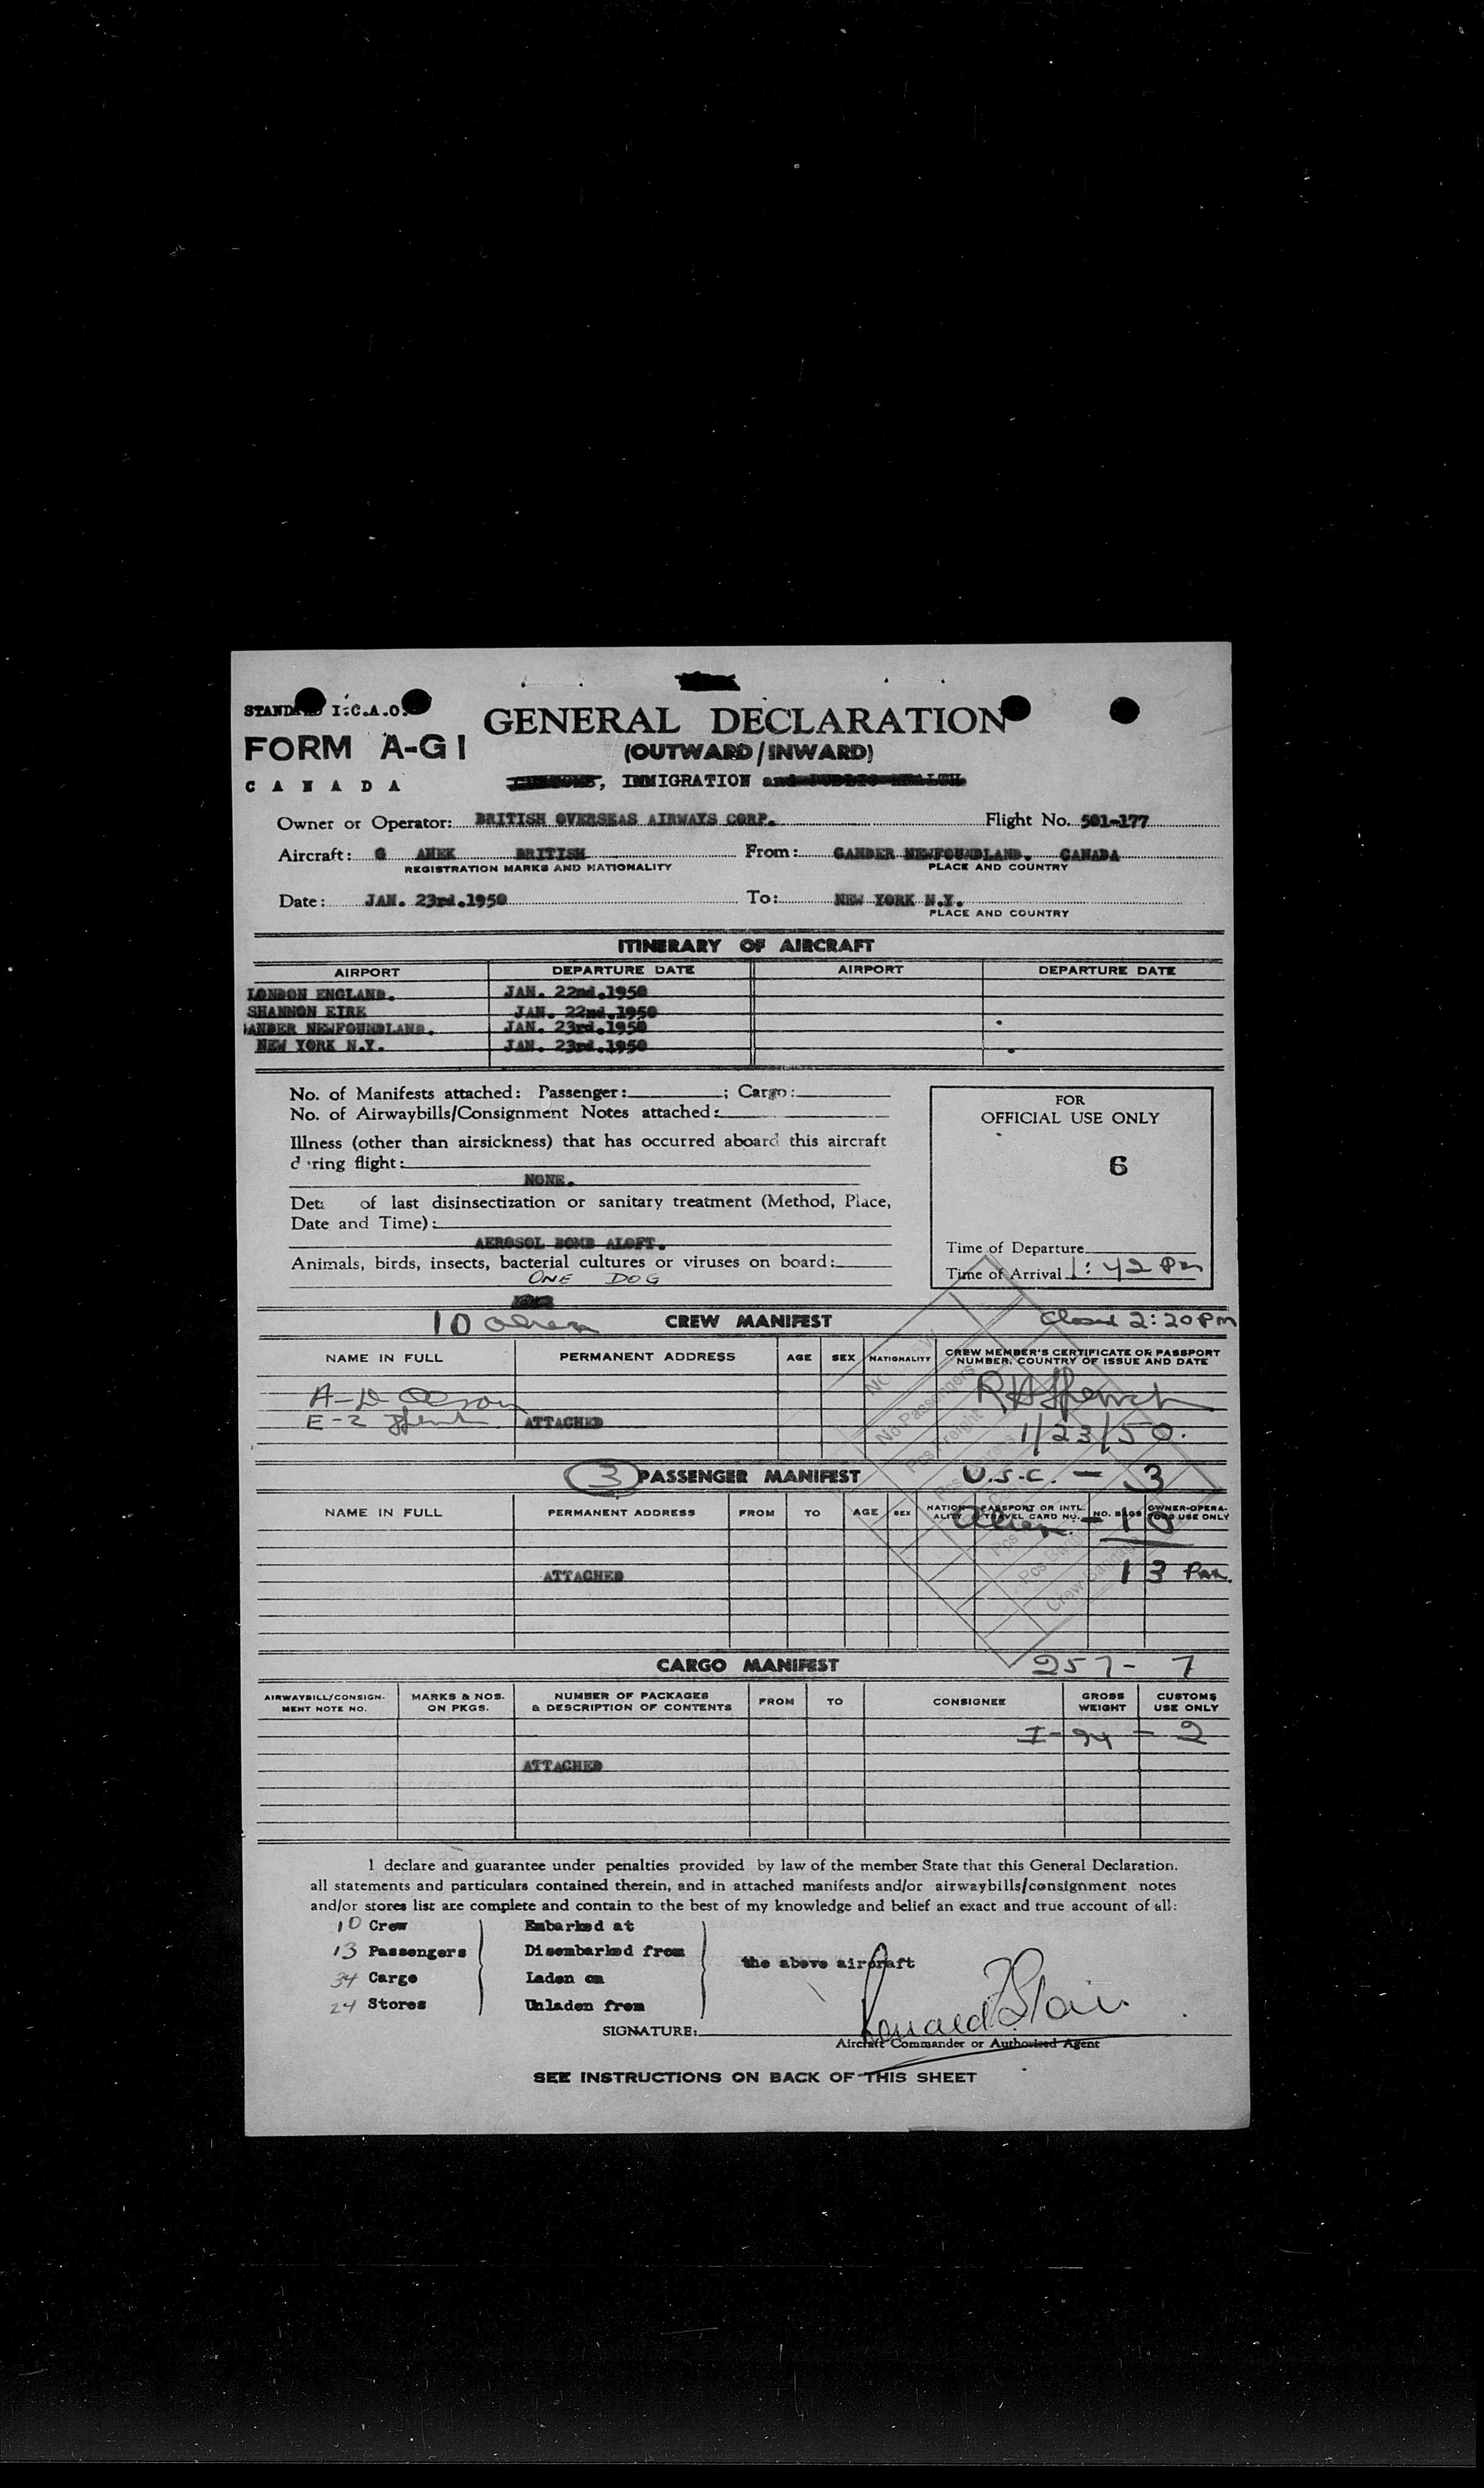 STANDARD I.C.A.O.
GENERAL DECLARATION
FORM A-G1
(OUTWARD/INWARD)
CANADA
, IMMIGRATION
Owner or Operator: BRITISH OVERSEAS AIRWAYS CORP. Flight No. 501-177
Aircraft: G AHEK BRITISH From: GANDER NEWFOUNDLAND. CANADA
REGISTRATION MARKS AND NATIONALITY PLACE AND COUNTRY
Date: JAN. 23rd.1950 To: NEW YORK N.Y.
PLACE AND COUNTRY
ITINERARY OF AIRCRAFT
AIRPORT DEPARTURE DATE AIRPORT DEPARTURE DATE
LONDON ENGLAND. JAN. 22nd.1950
SHANNON EIRE JAN. 22nd.1950
ANDER NEWFOUNDLAND. JAN. 23rd.1950
NEW YORK N.Y. JAN. 23rd.1950
No. of Manifests attached: Passenger: ; Cargo:
No. of Airwaybills/Consignment Notes attached:
Illness (other than airsickness) that has occurred aboard this aircraft
d ring flight:
NONE.
Det of last disinsectization or sanitary treatment (Method, Place,
Date and Time):
AEROSOL BOMB ALOFT.
Animals, birds, insects, bacterial cultures or viruses on board:
ONE DOG
FOR
OFFICIAL USE ONLY
6
Time of Departure
Time of Arrival 1:42 Pm
10 alien CREW MANIFEST Closed 2:20 PM
NAME IN FULL PERMANENT ADDRESS AGE SEX NATIONALITY CREW MEMBER'S CERTIFICATE OR PASSPORT
NUMBER, COUNTRY OF ISSUE AND DATE
A-D Olson
E-2
ATTACHED
1/23/50.
No Passengers
Pcs Freight
Crew Baggage
3 PASSENGER MANIFEST U.S.C. - 3
NAME IN FULL PERMANENT ADDRESS FROM TO AGE SEX NATIONALITY PASSPORT OR INTL. TRAVEL CARD NO. NO. BAGS OWNER-OPERATORS USE ONLY
alien - 10
ATTACHED 13 Pax.
CARGO MANIFEST 257- 7
AIRWAYBILL/CONSIGNMENT NOTE NO. MARKS & NOS. ON PKGS. NUMBER OF PACKAGES & DESCRIPTION OF CONTENTS FROM TO CONSIGNEE GROSS WEIGHT CUSTOMS USE ONLY
I-94 - 2
ATTACHED
I declare and guarantee under penalties provided by law of the member State that this General Declaration,
all statements and particulars contained therein, and in attached manifests and/or airwaybills/consignment notes
and/or stores list are complete and contain to the best of my knowledge and belief an exact and true account of all:
10 Crew Embarked at
13 Passengers Disembarked from
the above aircraft
34 Cargo Laden on
24 Stores Unladen from
SIGNATURE:
Aircraft Commander or Authorized Agent
SEE INSTRUCTIONS ON BACK OF THIS SHEET